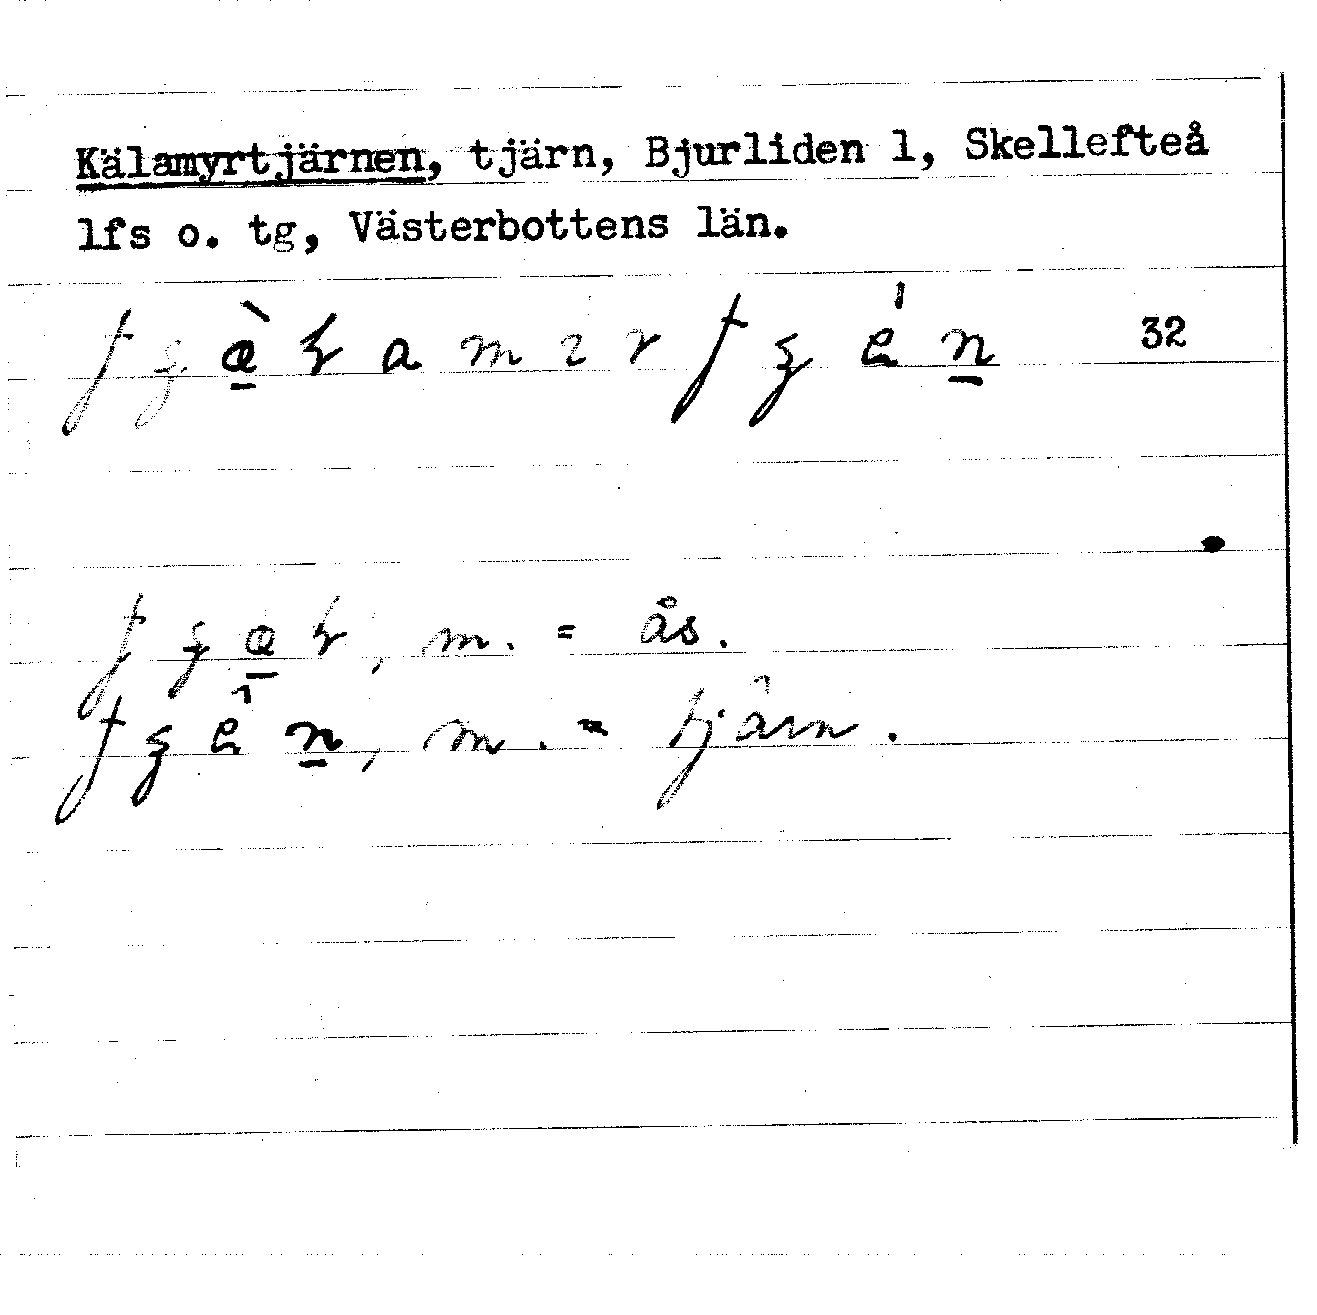 Kälamyrtjärnen, tjärn, Bjurliden 1, Skellefteå
lfs o. tg, Västerbottens län.
32
m. = ås.
m. = tjärn.